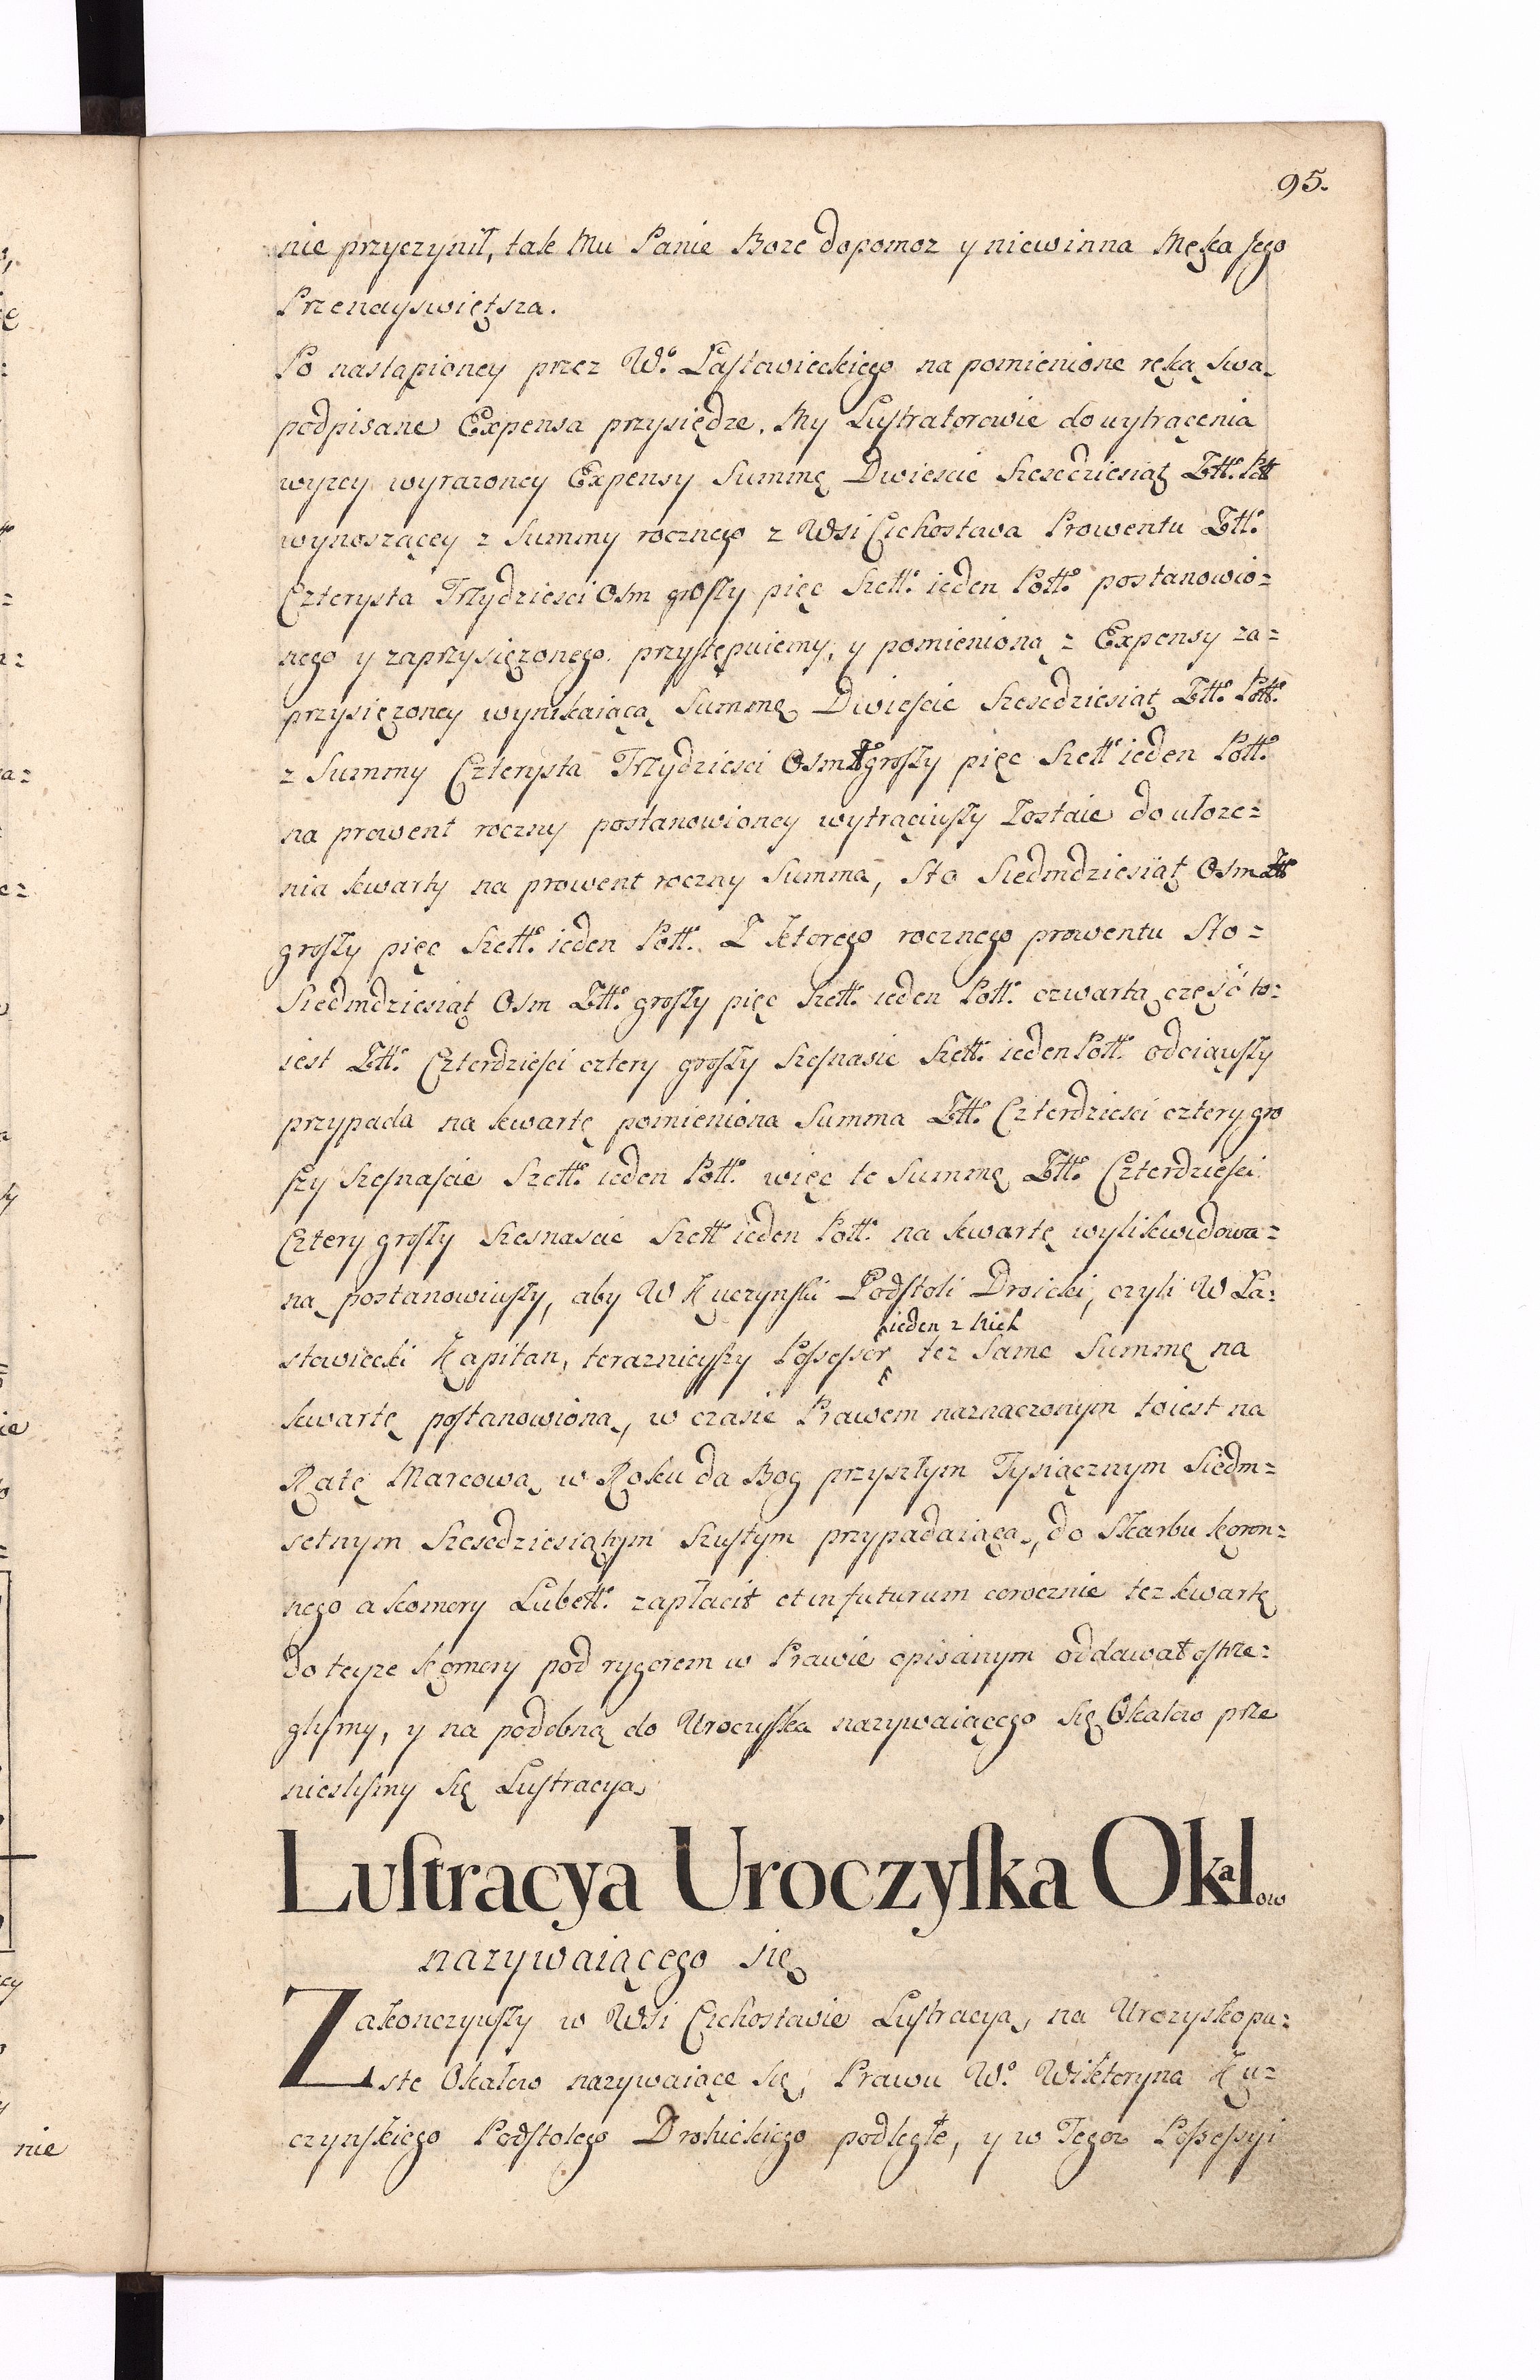 95.
nie przyczynił, tak Mu Panie Boze dopomoz y niewinna Męka Jego
Przenayswiętsza.
Po nastąpioney przez Wo. Łastawieckiego na pomienione ręką swą
podpisane Expensa przysiędze. My Lustratorowie do wytrącenia
wyzey wyrazoney Expensy Summę Dwiescie Szescdziesiąt Złł. Poll
wynoszącey z Summy rocznego z Wsi Cichostawa Prowentu Złł.
Czterysta Trzydziesci Osm groszy pięc Szell. ieden Poll. postanowio=
nego y zaprzysięzonego. przystępuiemy, y pomienioną z Expensy za=
przysięzoney wynikaiącą Summę Dwiescie Szescdziesiąt Złł. Poll.
z Summy Czterysta Trzydziesci Osm Zł groszy pięc Szell ieden Poll.
na prowent roczny postanowioney wytrąciwszy Zostaie do ułoze=
nia kwarty na prowent roczny Summa, Sto Siedmdziesiąt Osm Złł
groszy pięc Szell. ieden Poll. Z ktorego rocznego prowentu Sto=
Siedmdziesiąt Osm Złł. groszy pięc Szell. ieden Poll. czwartą częsć to=
iest Złł. Czterdziesci cztery groszy Szesnasie Szell. ieden Poll. odciąwszy
przypada na kwartę pomieniona Summa Złł. Czterdziesci cztery gro
szy Szesnascie Szell. ieden Poll. więc te Summę Złł. Czterdziesci
Cztery groszy Szesnascie Szell ieden Poll. na kwartę wylikwidowa=
ną postanowiwszy, aby W Kuczynski Podstoli Droicki, czyli W Ła=
ieden z Nich
stawiecki Kapitan, teraznieyszy Possessor tez Same Summę na
kwartę postanowioną, w czasie Prawem naznaczonym toiest na
Ratę Marcową w Roku da Bog przyszłym Tysiącznym Siedm=
setnym Szescdziesiątym Szustym przypadaiącą, do Skarbu koron=
nego a komory Lubell. zapłacił et in futurum corocznie tez kwartę
do teyze komory pod rygorem w Prawie opisanym oddawał ostrze=
glismy, y na podobną do Uroczyska nazywaiącego się Okałow prze
nieslismy się Lustracyą.
Lustracya Uroczyska Okal.ow
nazywaiącego się
Zakonczywszy w Wsi Cichostawie Lustracyą, na Uroczysko pu=
ste Okałow nazywaiące się, Prawu Wo. Wiktoryna Ku=
czynskiego Podstolego Drohickiego podległe, y w Tegoz Possessyi